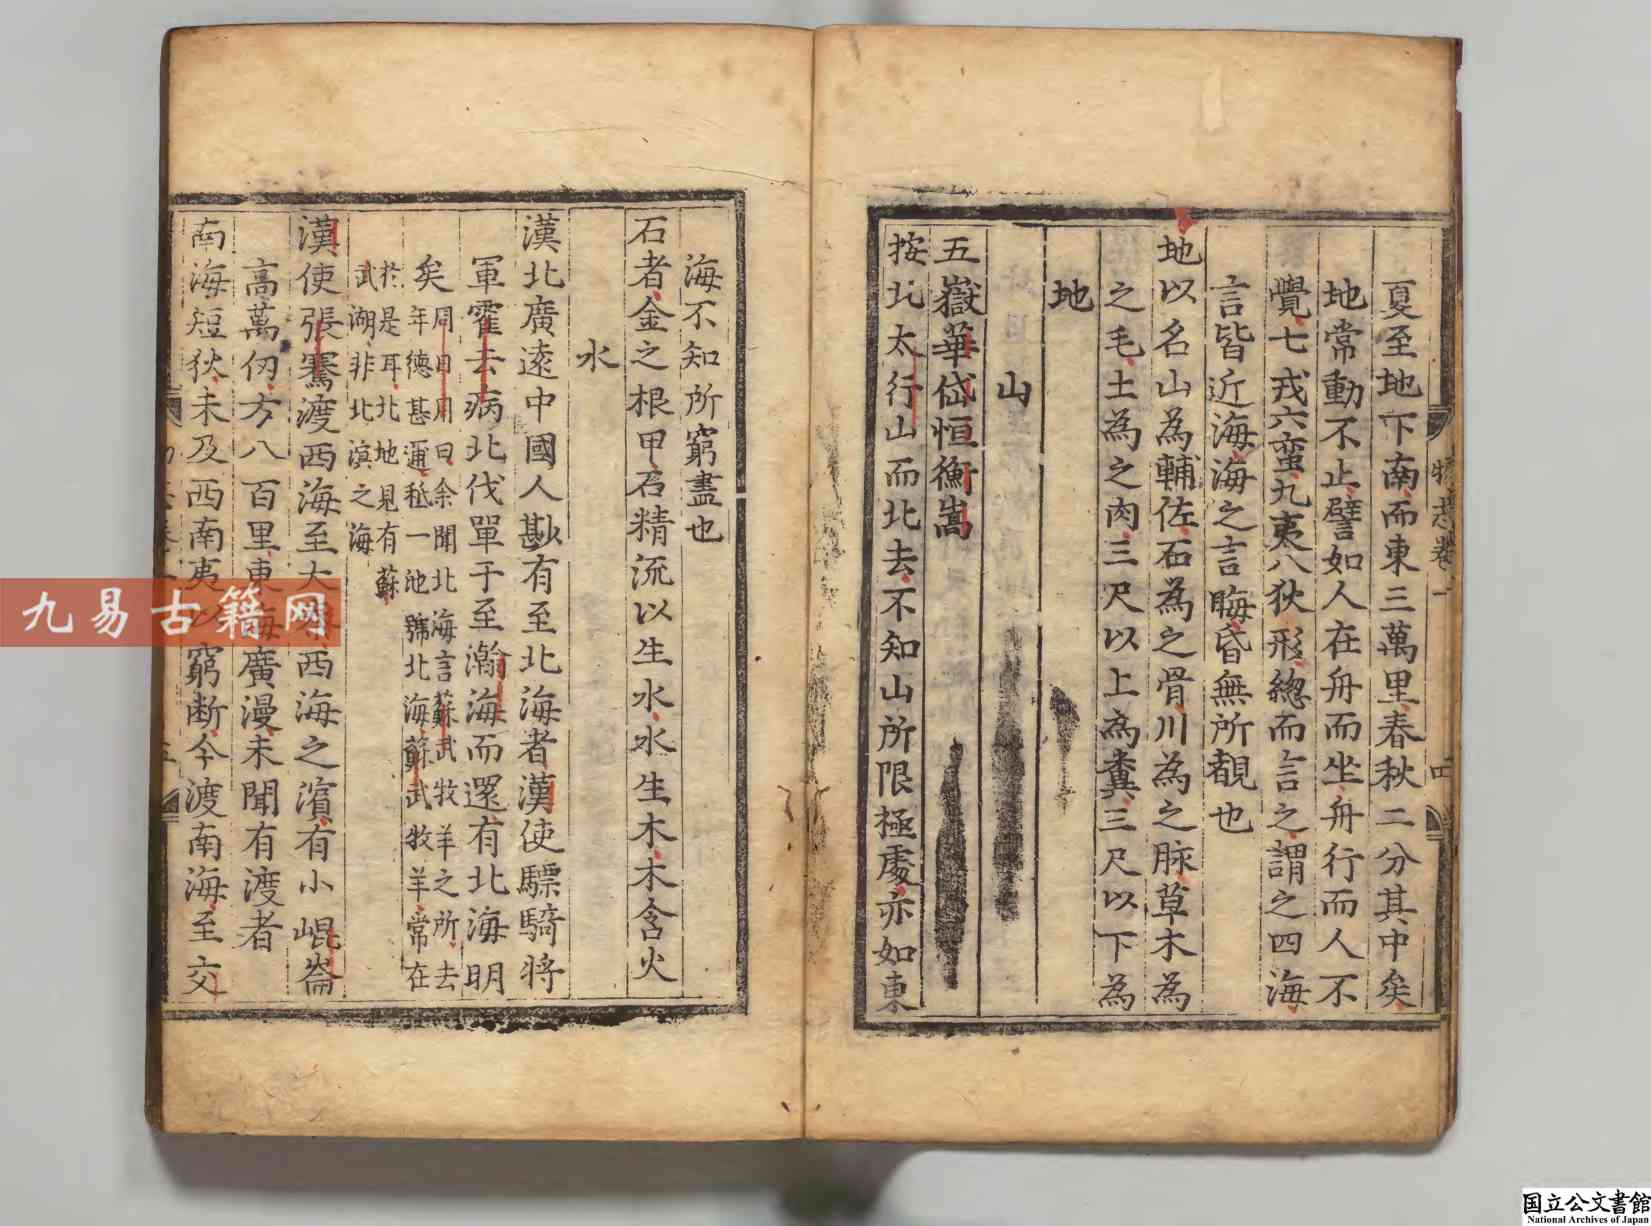 夏至地下南而東三萬里春秋二分其中矣
地常動不止譬如人在舟而坐舟行而人不
覺七戎六蛮九夷八狄形總而言之謂之四海
言皆近海海之言晦昏無所覩也
地以名山為輔佐石為之骨川為之脉草木為
之毛土為之肉三尺以上為糞三尺以下為
地
山
五嶽華岱恒衡嵩
按北太行山而北去不知山所限極處亦如東
海不知所窮盡也
石者金之根甲石精流以生水水生木木含火
水
漢北廣遠中國人尠有至北海者漢使驃騎将
軍霍去病北伐單于至瀚海而還有北海明
矣
周日用曰余聞北海言蘇武牧羊之所去
年德甚邇秪一池號北海蘇武牧羊常在
於是耳北地見有蘇
武湖非北溟之海
漢使張騫渡西海至大秦西海之濵有小崐崙
高萬仞方八百里東海廣漫未聞有渡者
南海短狄未及西南夷以窮断今渡南海至交
物志卷一
四
九易古籍网
国立公文書館
National Archives of Japan